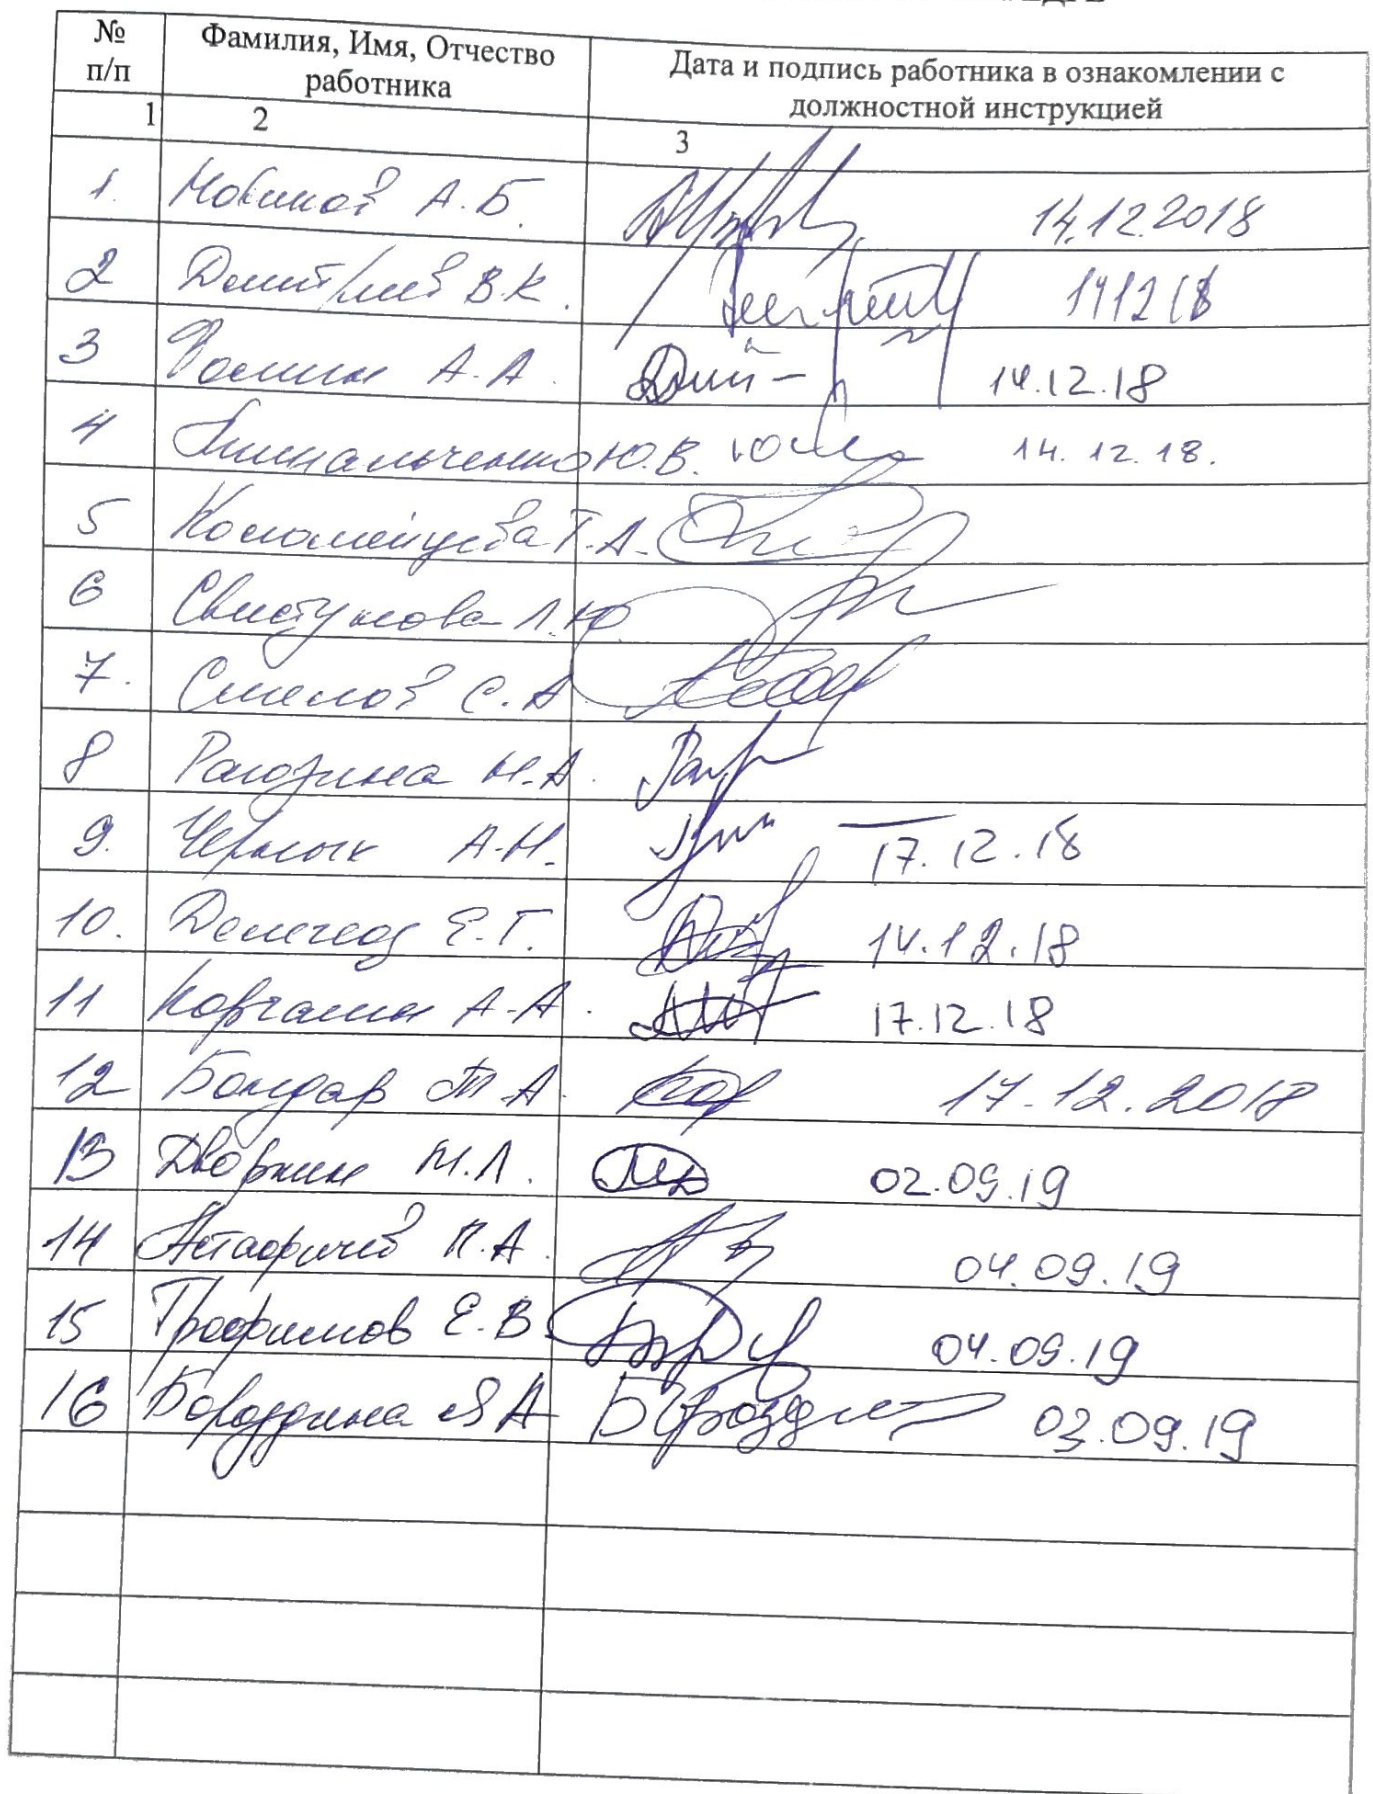 № п/п Фамилия, Имя, Отчество работника Дата и подпись работника в ознакомлении с должностной инструкцией
1 2 3
1. Новиков А.Б. 14.12.2018
2 Дмитриев В.К. 14 12 18
3 Фомин А.А. 14.12.18
4 Ю.В. 14.12.18.
5 Коломейцева Т.А.
6 Свистунова Л.Ю.
7. Смелов С.А
8 Рагозина Н.А.
9. Черных А.Н. 17.12.18
10. Е.Г. 14.12.18
11 Корчагин А.А. 17.12.18
12 Бондар Т А. 17.12.2018
13 Дворкин М.Л. 02.09.19
14 П.А. 04.09.19
15 Трофимов Е.В. 04.09.19
16 Бороздина Я А 03.09.19